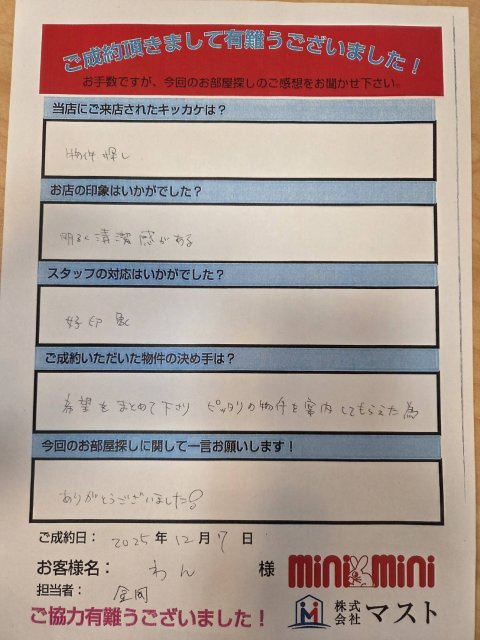 ご成約頂きまして有難うございました！
お手数ですが、今回のお部屋探しのご感想をお聞かせ下さい。
当店にご来店されたキッカケは？
物件探し
お店の印象はいかがでした？
明るく清潔感がある
スタッフの対応はいかがでした？
好印象
ご成約いただいた物件の決め手は？
希望をまとめて下さり ピッタリの物件を案内してもらえた為
今回のお部屋探しに関して一言お願いします！
ありがとうございました
ご成約日： 2025 年 12 月 7 日
お客様名： わん 様
mini mini
担当者： 金岡
株式会社 マスト
ご協力有難うございました！